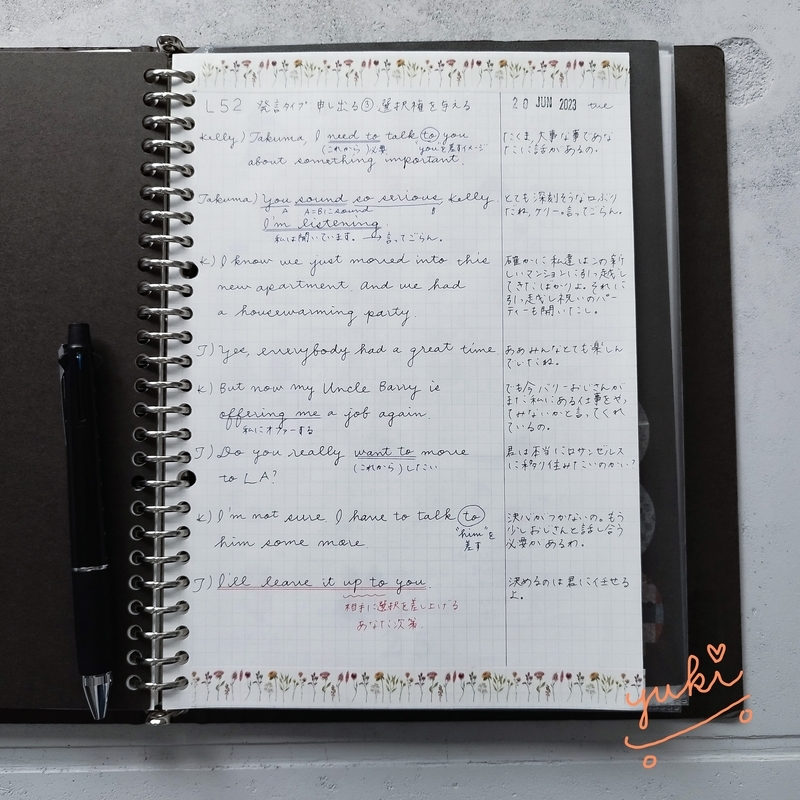 L52 発言タイプ 申し出る③ 選択権を与える
20 JUN 2023 tue
Kelly) Takuma, I need to talk to you
(これから)必要 "you"を差すイメージ
about something important.
たくま、大事な事であな
たに話があるの。
Takuma) You sound so serious Kelly.
A A=Bにsound B
I'm listening
私は聞いています。→言ってごらん。
とても深刻そうな口ぶり
だね、ケリー。言ってごらん。
K) I know we just moved into this
new apartment. And we had
a housewarming party.
確かに私達はこの新
しいマンションに引っ越し
てきたばかりよ。それに
引っ越し祝いのパー
ティーも開いたし。
T) Yes, everybody had a great time.
ああみんなとても楽しん
でいたね。
K) But now my Uncle Barry is
offering me a job again.
私にオファーする
でも今バリーおじさんが
また私にある仕事をやっ
てみないかと言ってくれ
ているの。
T) Do you really want to move
(これから)したい
to LA?
君は本当にロサンゼルス
に移り住みたいのかい?
K) I'm not sure. I have to talk to
"him"を
差す
him some more.
決心がつかないの。もう
少しおじさんと話し合う
必要があるわ。
T) I'll leave it up to you.
相手に選択を差し上げる
あなた次第
決めるのは君に任せる
よ。
yuki